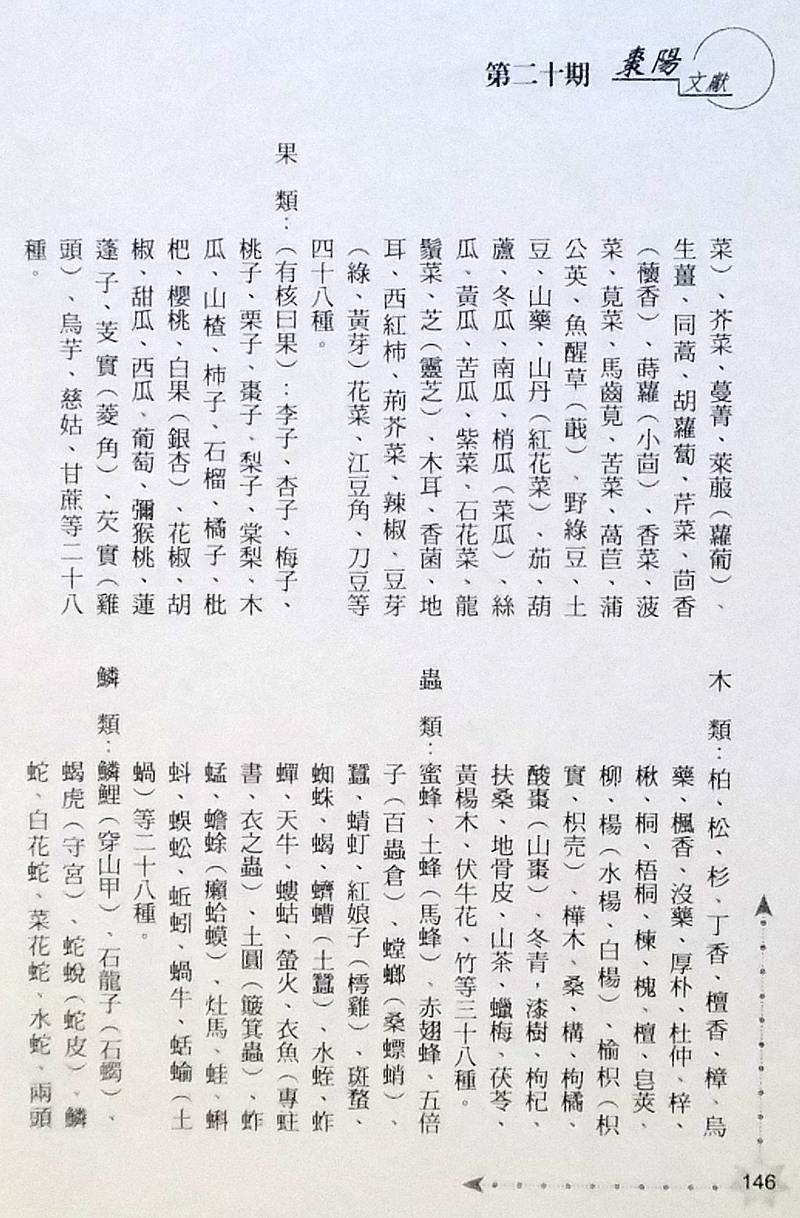 第二十期
棗陽
文獻
菜）、芥菜、蔓菁、萊菔（蘿蔔）、
生薑、同蒿、胡蘿蔔、芹菜、茴香
（蘹香）、蒔蘿（小茴）、香菜、菠
菜、莧菜、馬齒莧、苦菜、萵苣、蒲
公英、魚醒草（蕺）、野綠豆、土
豆、山藥、山丹（紅花菜）、茄、葫
蘆、冬瓜、南瓜、梢瓜（菜瓜）、絲
瓜、黃瓜、苦瓜、紫菜、石花菜、龍
鬚菜、芝（靈芝）、木耳、香菌、地
耳、西紅柿、荊芥菜、辣椒、豆芽
（綠、黃芽）花菜、江豆角、刀豆等
四十八種。
果　類：（有核曰果）：李子、杏子、梅子、
桃子、栗子、棗子、梨子、棠梨、木
瓜、山楂、柿子、石榴、橘子、枇
杷、櫻桃、白果（銀杏）、花椒、胡
椒、甜瓜、西瓜、葡萄、彌猴桃、蓮
蓬子、芰實（菱角）、芡實（雞
頭）、烏芋、慈姑、甘蔗等二十八
種。
木　類：柏、松、杉、丁香、檀香、樟、烏
藥、楓香、沒藥、厚朴、杜仲、梓、
楸、桐、梧桐、楝、槐、檀、皂莢、
柳、楊（水楊、白楊）、榆枳（枳
實、枳壳）、樺木、桑、構、枸橘、
酸棗（山棗）、冬青，漆樹、枸杞、
扶桑、地骨皮、山茶、蠟梅、茯苓、
黃楊木、伏牛花、竹等三十八種。
蟲　類：蜜蜂、土蜂（馬蜂）、赤翅蜂、五倍
子（百蟲倉）、螳螂（桑螵蛸）、
蠶、蜻虰、紅娘子（樗雞）、斑蝥、
蜘蛛、蝎、蠐螬（土蠶）、水蛭、蚱
蟬、天牛、螻蛄、螢火、衣魚（專蛀
書　衣之蟲）、土圓（簸箕蟲）、蚱
蜢、蟾蜍（癩蛤蟆）、灶馬、蛙、蝌
蚪、蜈蚣、蚯蚓、蝸牛、蛞蝓（土
蝸）等二十八種。
鱗　類：鱗鯉（穿山甲）、石龍子（石蠋）、
蝎虎（守宮）、蛇蛻（蛇皮）、鱗
蛇、白花蛇、菜花蛇、水蛇、兩頭
146